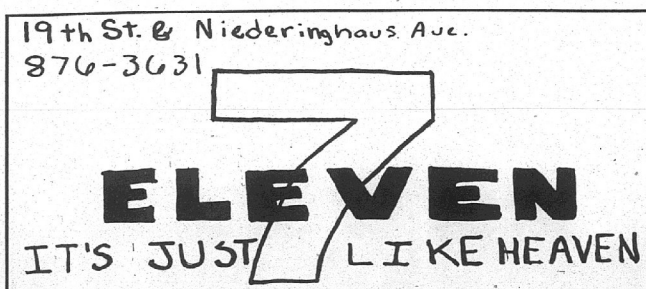 19th St. & Niederinghaus Ave.
876-3631
7
ELEVEN
IT'S JUST LIKE HEAVEN